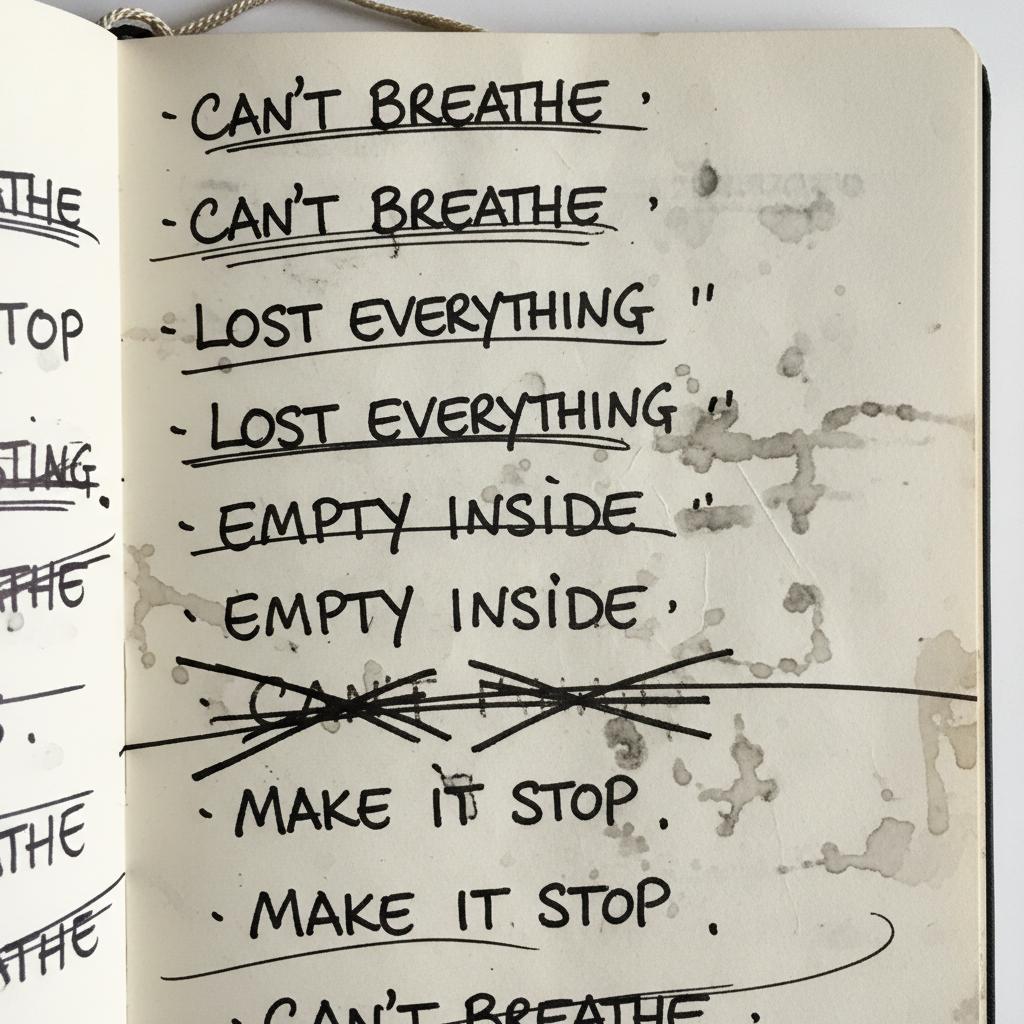 ATHE
TOP
THE
ATHE
ATHE
- CAN'T BREATHE '
- CAN'T BREATHE '
- LOST EVERYTHING "
- LOST EVERYTHING "
- EMPTY INSIDE "
· EMPTY INSIDE ·
· CAN'T
· MAKE IT STOP .
· MAKE IT STOP .
· CAN'T BREATHE '